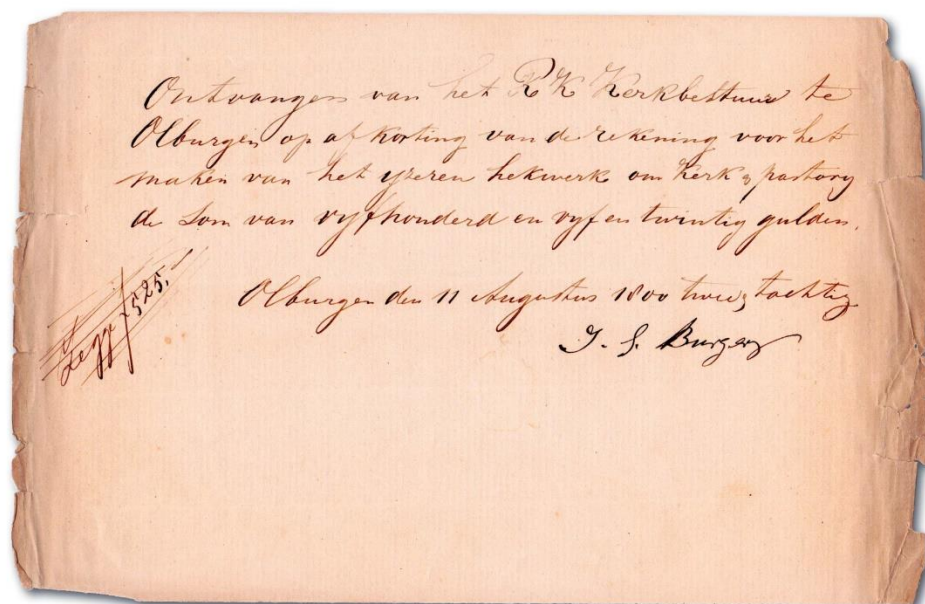 Ontvangen van het R K Kerkbestuur te
Olburgen op afkorting van de rekening voor het
maken van het yzeren hekwerk om Kerk & pastory
de Som van vyfhonderd en vyf en twintig gulden.
Zegge f 525.
Olburgen den 11 Augustus 1800 twee & tachtig
Burgers